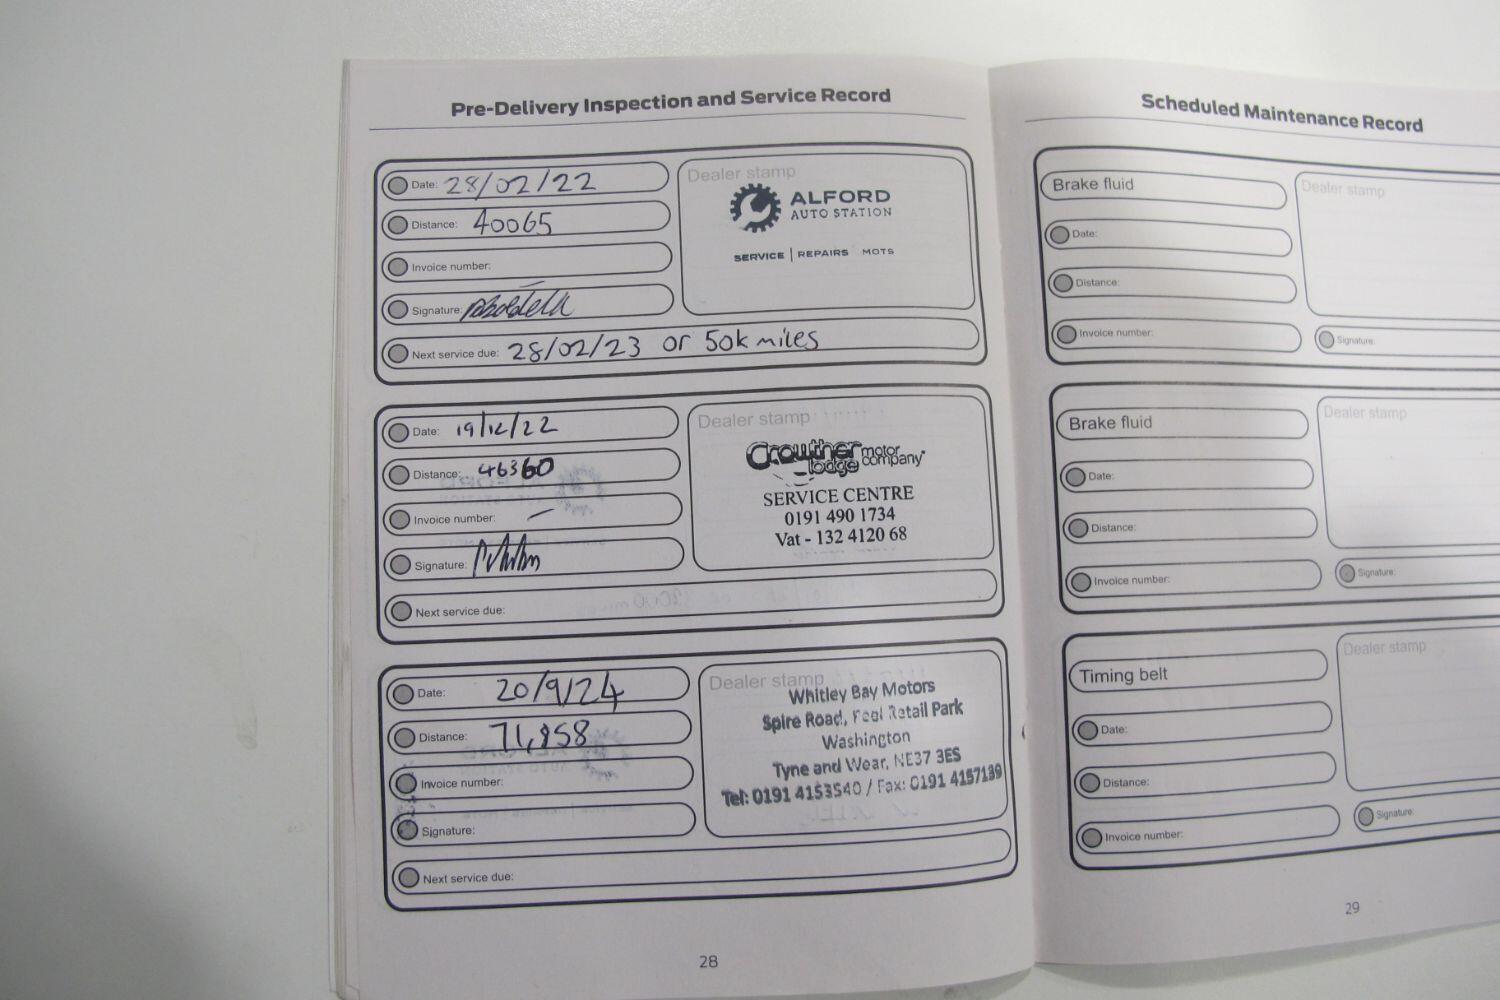 Pre-Delivery Inspection and Service Record
Date: 28/02/22
Distance: 40065
Invoice number:
Signature:
Next service due: 28/02/23 or 50k miles
Dealer stamp
ALFORD
AUTO STATION
SERVICE | REPAIRS MOTS
Date: 19/12/22
Distance: 46360
Invoice number: –
Signature:
Next service due:
Dealer stamp
Crowther motor
lodge company
SERVICE CENTRE
0191 490 1734
Vat - 132 4120 68
Date: 20/9/24
Distance: 71,858
Invoice number:
Signature:
Next service due:
Dealer stamp
Whitley Bay Motors
Spire Road, Retail Park
Washington
Tyne and Wear, NE37 3ES
Tel: 0191 4153540 / Fax: 0191 4157139
28
Scheduled Maintenance Record
Brake fluid
Date:
Distance:
Invoice number:
Dealer stamp
Signature:
Brake fluid
Date:
Distance:
Invoice number:
Dealer stamp
Signature:
Timing belt
Date:
Distance:
Invoice number:
Dealer stamp
Signature:
29